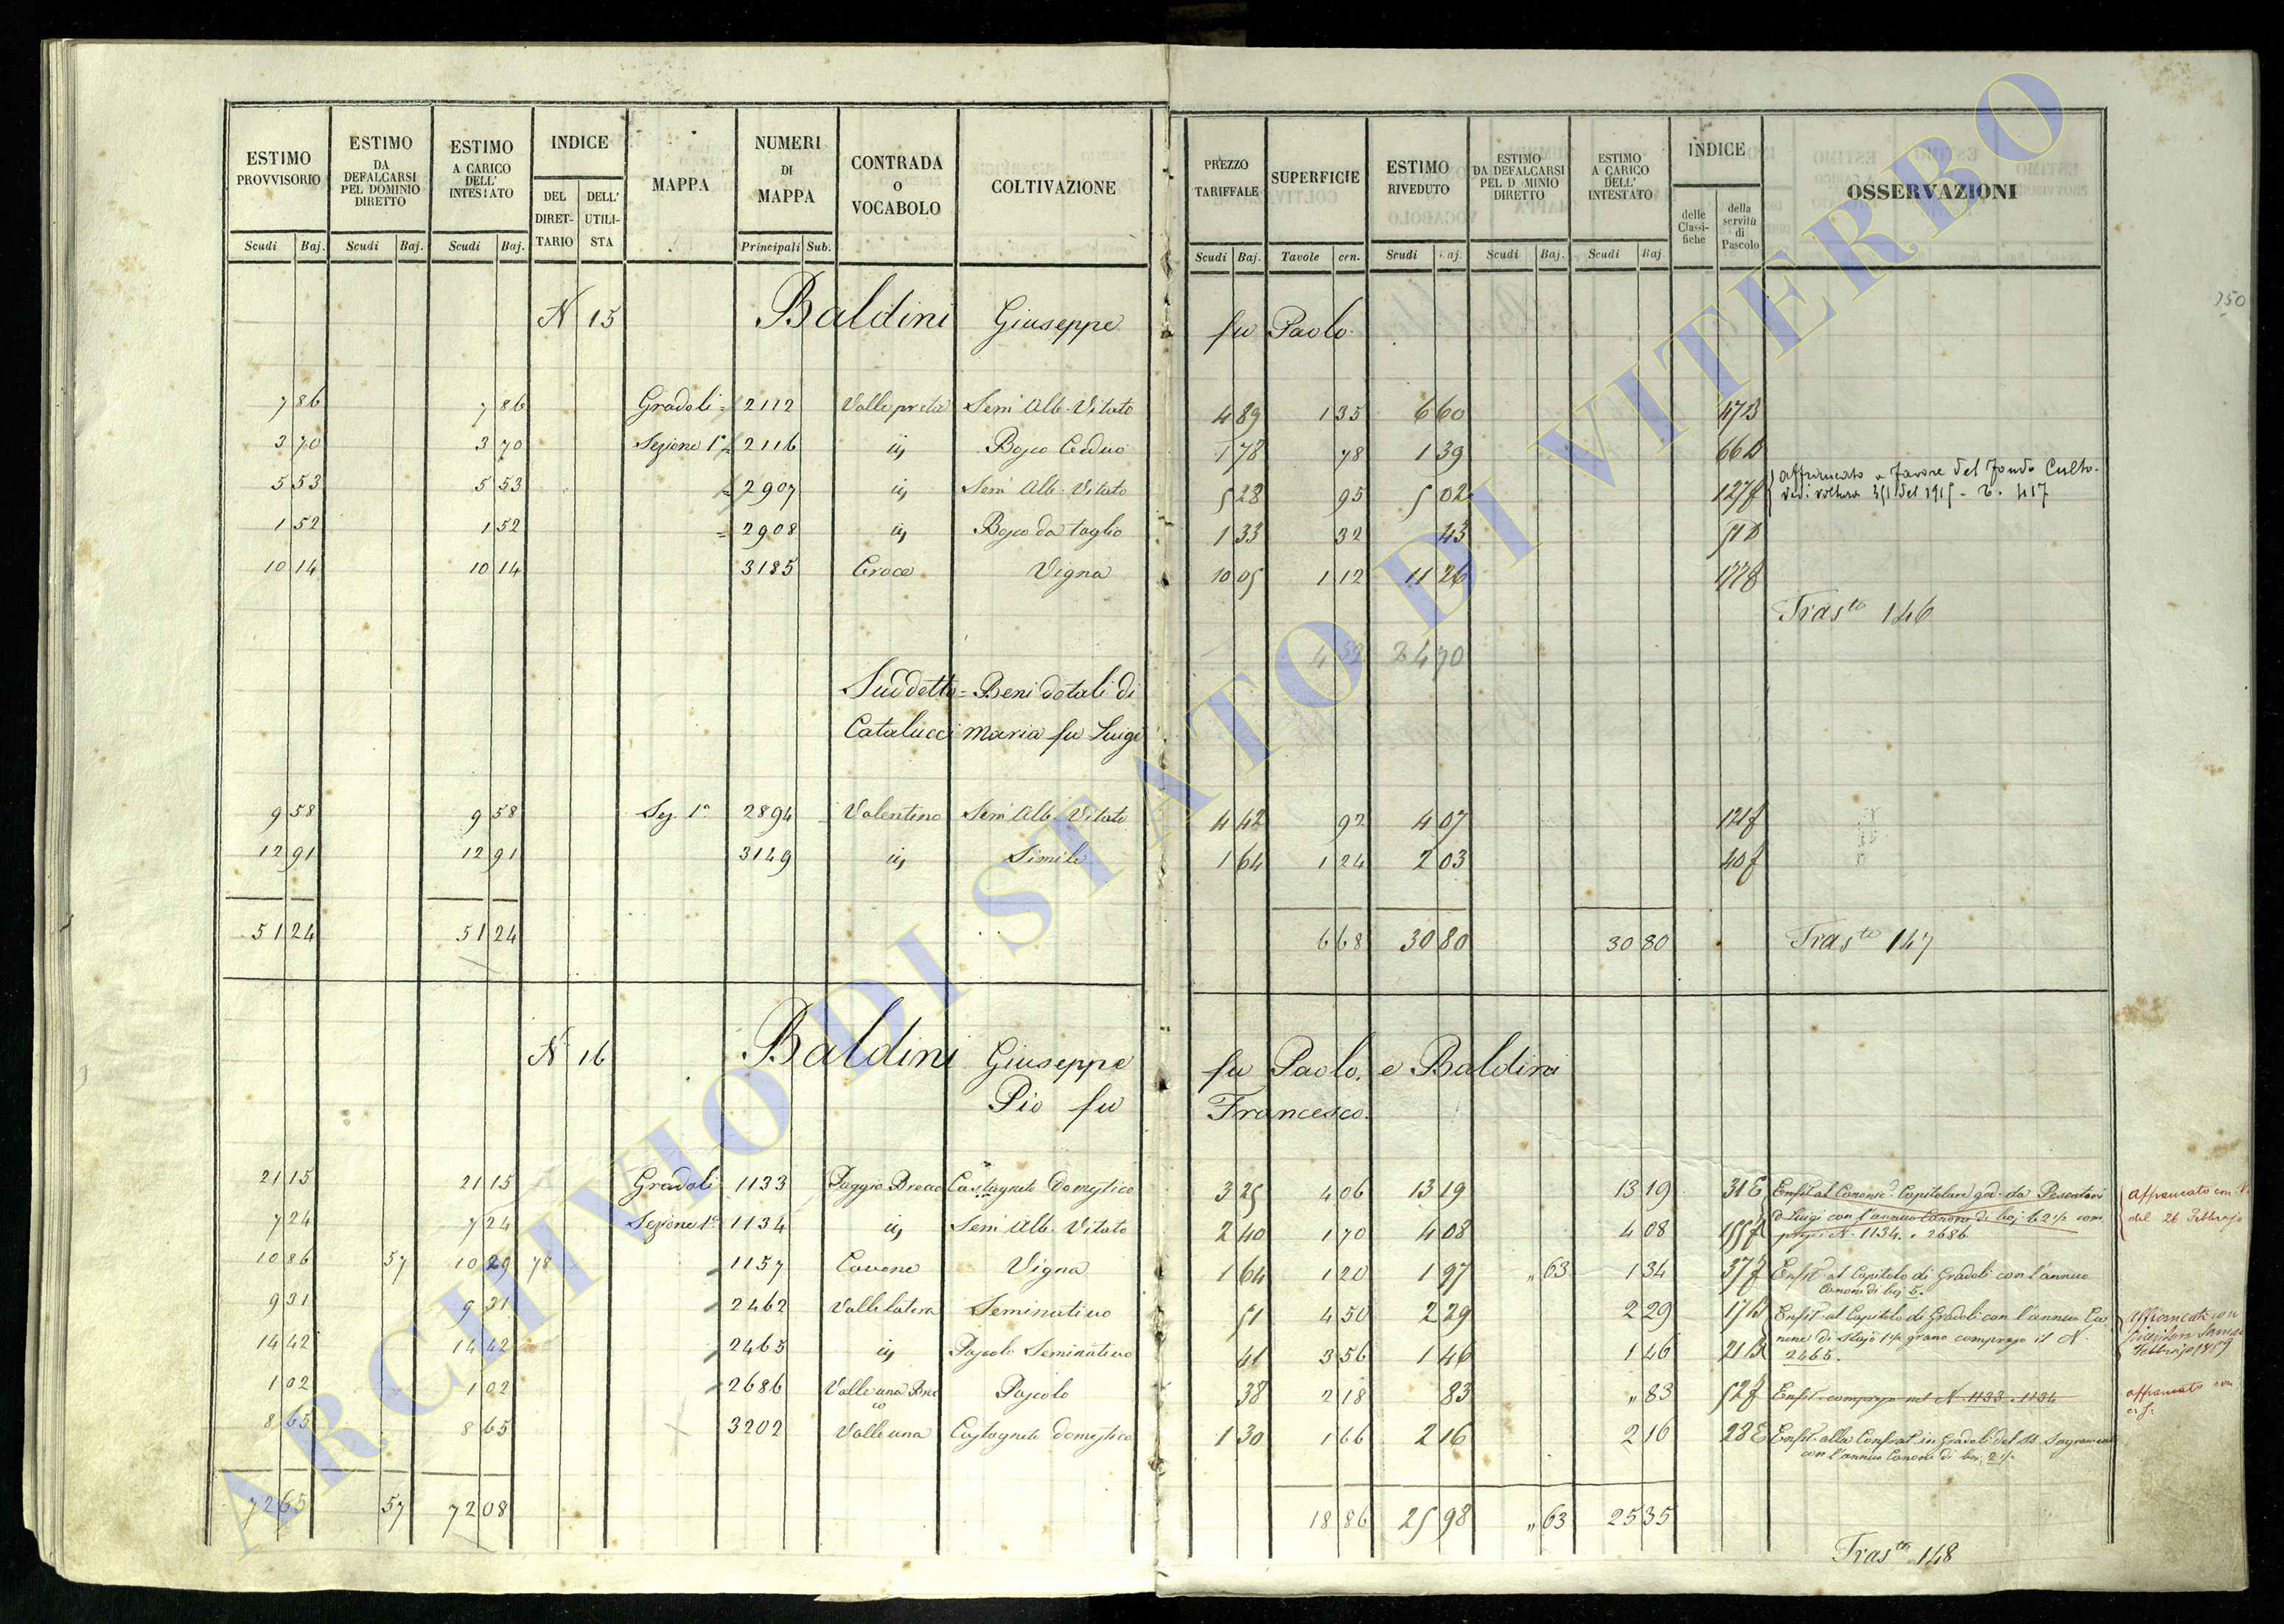 ESTIMO PROVVISORIO
Scudi Baj.
ESTIMO DA DEFALCARSI PEL DOMINIO DIRETTO
Scudi Baj.
ESTIMO A CARICO DELL' INTESTATO
Scudi Baj.
INDICE
DEL DIRETTARIO
DELL' UTILISTA
MAPPA
NUMERI DI MAPPA
Principali Sub.
CONTRADA O VOCABOLO
COLTIVAZIONE
PREZZO TARIFFALE
Scudi Baj.
SUPERFICIE
Tavole cen.
ESTIMO RIVEDUTO
Scudi Baj.
ESTIMO DA DEFALCARSI PEL D MINIO DIRETTO
Scudi Baj.
ESTIMO A CARICO DELL' INTESTATO
Scudi Baj
INDICE
delle Classifiche
della servitù di Pascolo
OSSERVAZIONI
350
N 15 Baldini Giuseppe fu Paolo.
7 86 7 86 Gradoli = 2112 Valle preta Sem Alb. Vitato 4 89 1 35 6 60 47 B
3 70 3 70 Sezione 1a = 2116 id Bosco Ceduo 1 78 78 1 39 66 D
5 53 5 53 = 2907 id Sem Alb. Vitato 5 28 95 5 02 127 f Affrancato a favore del Fondo Culto-
vedi voltura 351 del 1915 - 417
1 52 1 52 = 2908 id Bosco da taglio 1 33 32 43 51 D
10 14 10 14 3185 Croce Vigna 10 05 1 12 11 26 177 f
Trasto 146
4 52 24 70
Suddetto = Beni dotali di
Catalucci Maria fu Luigi
9 58 9 58 Sez. 1a 2894 Valentino Sem Alb. Vitato 4 42 92 4 07 121 f
12 91 12 91 3149 id Simile 1 64 1 24 2 03 40 f
51 24 51 24 6 68 30 80 30 80 Trasto 147
N 16 Baldini Giuseppe fu Paolo, e Baldini
Pio fu Francesco.
21 15 21 15 Gradoli 1133 Poggio Brecco Castagneto Domestico 3 25 4 06 13 19 13 19 31 E Enfit. al Canonic. Capitolare god. da Pescatori
Affrancato con
7 24 7 24 Sezione 1a 1134 id Sem Alb. Vitato 2 40 1 70 4 08 4 08 155 f D. Luigi con l'annuo Canone di baj. 62 1/2 com
preso N. 1134. e 2686
del 26 Febbrajo
10 86 57 10 29 78 1157 Cavone Vigna 1 64 1 20 1 97 " 63 1 34 37 f Enfit. al Capitolo di Gradoli con l'annuo
Canone di baj 5.
9 31 9 31 2462 Valle latera Seminativo 51 4 50 2 29 2 29 17 B Enfit. al Capitolo di Gradoli con l'annuo Ca
none di Staja 1 1/2 grano compreso il N.
14 42 14 42 2465 id Pascolo Seminativo 41 3 56 1 46 1 46 21 B 2465.
Febbrajo 1859
1 02 1 02 2686 Valle una Brec
co Pascolo 38 2 18 83 " 83 52 f Enfit. compreso nel N. 1133. 1134
affrancato con
8 65 8 65 3202 Valle una Castagneto domestico 1 30 1 66 2 16 2 16 28 E Enfit. alla Confrat. in Gradoli del SS. Sagramen
con l'annuo Canone di baj. 2 1/2
72 65 57 72 08 18 86 25 98 " 63 25 35
Trasto 148
ARCHIVIO DI STATO DI VITERBO